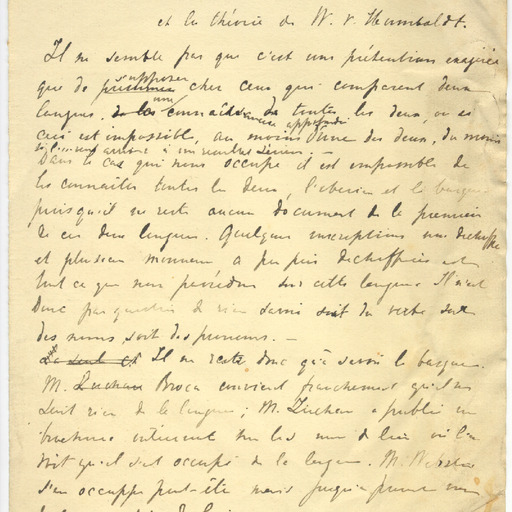 et la théorie de W. v. Humboldt.
Il ne semble pas que c'est une prétention exagérée
que de supposer chez ceux qui comparent deux
langues, une connaissance approfondie de toutes les deux, ou si
ceci est impossible, au moins d'une des deux, du moins
Dans le cas qui nous occupe il est impossible de
les connaître toutes les deux, l'iberien et le basque
puisqu'il ne reste aucun document de la première
de ces deux langues. Quelques inscriptions non déchiffrées
et plusieurs monnaies à peu près déchiffrées est
tout ce que nous possédons sur cette langue. Il n'est
donc pas question de rien savoir soit du verbe soit
des noms, soit des pronoms. —
Il ne reste donc qu'à savoir le basque.
M. Broca convient franchement qu'il ne
sait rien de la langue; M. Luchaire a publié une
brochure sur les noms de lieu où l'on
voit qu'il s'est occupé de la langue. M. Webster
s'en occupe peut-être mais jusqu'à présent